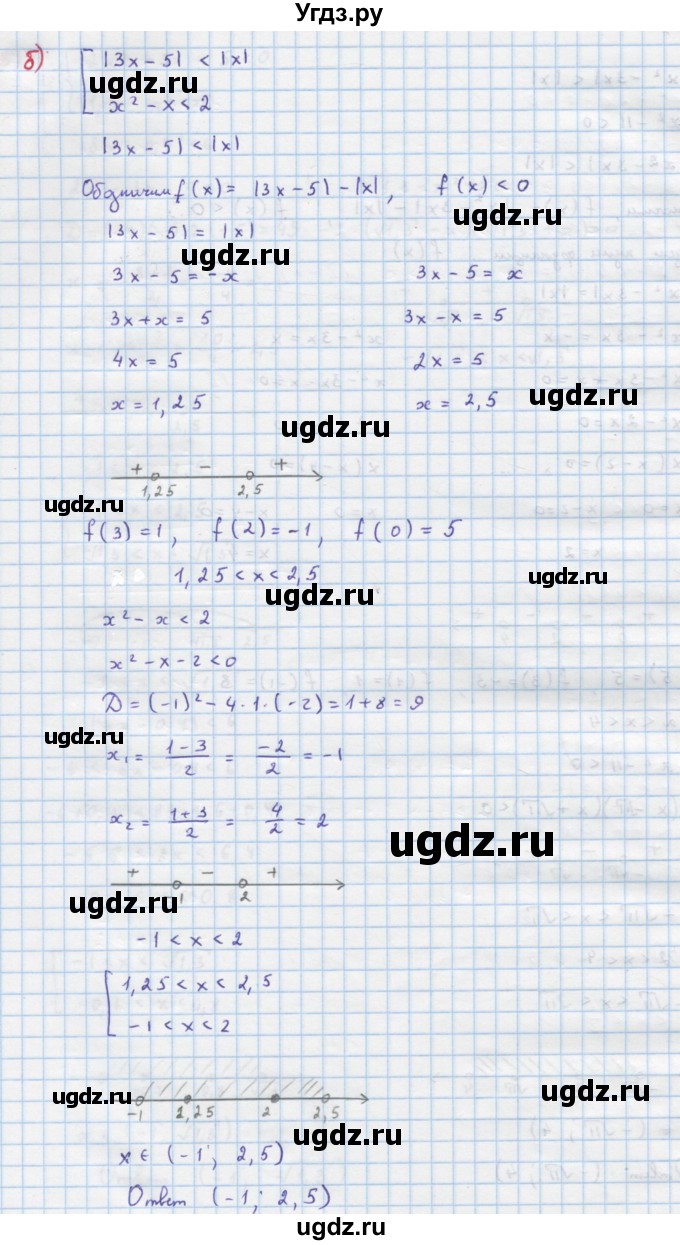 Угдз.ру
б)
[ |3x - 5| < |x|
ugdz.ru
x² - x < 2
|3x - 5| < |x|
Обозначим f(x) = |3x - 5| - |x|, f(x) < 0
ugdz.ru
|3x - 5| = |x|
ugdz.ru
3x - 5 = -x 3x - 5 = x
3x + x = 5 3x - x = 5
4x = 5 2x = 5
ugdz.ru
x = 1,25 x = 2,5
ugdz.ru
+ - +
1,25 2,5
ugdz.ru
f(3) = 1, f(2) = -1, f(0) = 5
1,25 < x < 2,5 ugdz.ru
ugdz.ru
x² - x < 2
x² - x - 2 < 0
D = (-1)² - 4·1·(-2) = 1 + 8 = 9
ugdz.ru
x₁ = (1-3)/2 = -2/2 = -1
x₂ = (1+3)/2 = 4/2 = 2
ugdz.ru
+ - +
1 2
ugdz.ru
-1 < x < 2
[ 1,25 < x < 2,5
-1 < x < 2
ugdz.ru ugdz.ru
-1 1,25 2 2,5
ugdz.ru
x ∈ (-1; 2,5)
Ответ (-1; 2,5)
ugdz.ru